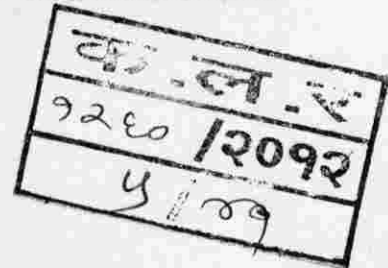 क.ल.र
१२६० /२०१२
५ /